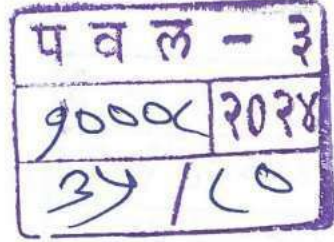 प व ल - ३
१०००८ २०२४
३५ / ८०